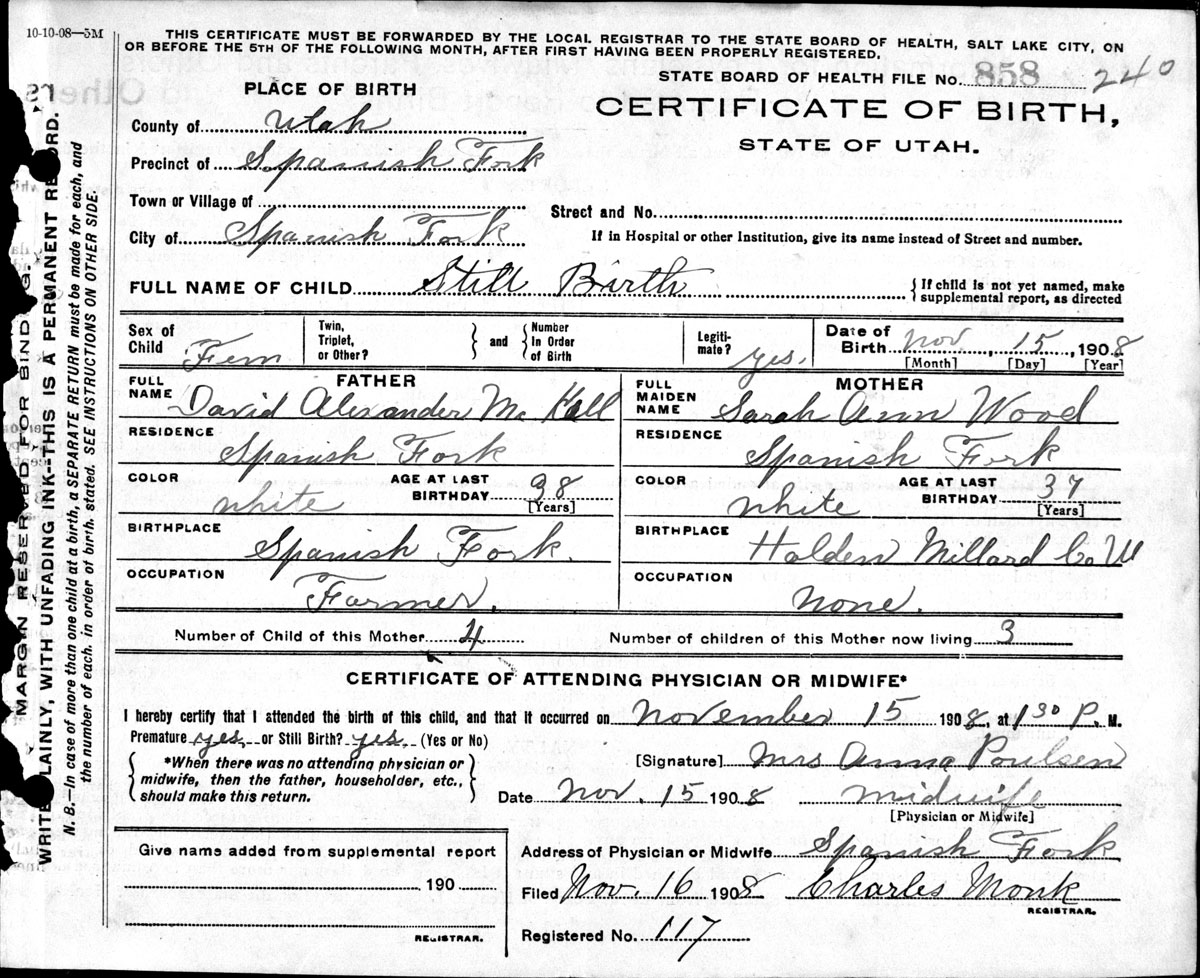 10-10-08—5M
THIS CERTIFICATE MUST BE FORWARDED BY THE LOCAL REGISTRAR TO THE STATE BOARD OF HEALTH, SALT LAKE CITY, ON
OR BEFORE THE 5TH OF THE FOLLOWING MONTH, AFTER FIRST HAVING BEEN PROPERLY REGISTERED.
STATE BOARD OF HEALTH FILE No. 858 240
PLACE OF BIRTH
CERTIFICATE OF BIRTH,
STATE OF UTAH.
County of Utah
Precinct of Spanish Fork
Town or Village of
Street and No.
City of Spanish Fork
If in Hospital or other Institution, give its name instead of Street and number.
FULL NAME OF CHILD Still Birth
{If child is not yet named, make
supplemental report, as directed
Sex of Child Fem
Twin, Triplet, or Other? } and { Number In Order of Birth
Legiti-mate? yes.
Date of Birth Nov, 15, 1908
[Month] [Day] [Year]
FATHER
FULL NAME David Alexander Mc Kell
RESIDENCE
Spanish Fork
COLOR white
AGE AT LAST BIRTHDAY 38
[Years]
BIRTHPLACE
Spanish Fork.
OCCUPATION
Farmer.
MOTHER
FULL MAIDEN NAME Sarah Ann Wood
RESIDENCE
Spanish Fork
COLOR white
AGE AT LAST BIRTHDAY 37
[Years]
BIRTHPLACE
Holden Millard Co U
OCCUPATION
None.
Number of Child of this Mother 4
Number of children of this Mother now living 3
CERTIFICATE OF ATTENDING PHYSICIAN OR MIDWIFE*
I hereby certify that I attended the birth of this child, and that it occurred on November 15 1908, at 1 30 P. M.
Premature yes or Still Birth? yes (Yes or No)
{ *When there was no attending physician or
midwife, then the father, householder, etc.,
should make this return. }
[Signature] Mrs Anna Poulsen
Date Nov. 15 1908 Midwife
[Physician or Midwife]
Give name added from supplemental report
190
REGISTRAR.
Address of Physician or Midwife Spanish Fork
Filed Nov. 16 1908 Charles Monk
REGISTRAR.
Registered No. 117
MARGIN RESERVED FOR BINDING.
WRITE PLAINLY, WITH UNFADING INK--THIS IS A PERMANENT RECORD.
N. B.—In case of more than one child at a birth, a SEPARATE RETURN must be made for each, and
the number of each, in order of birth, stated. SEE INSTRUCTIONS ON OTHER SIDE.